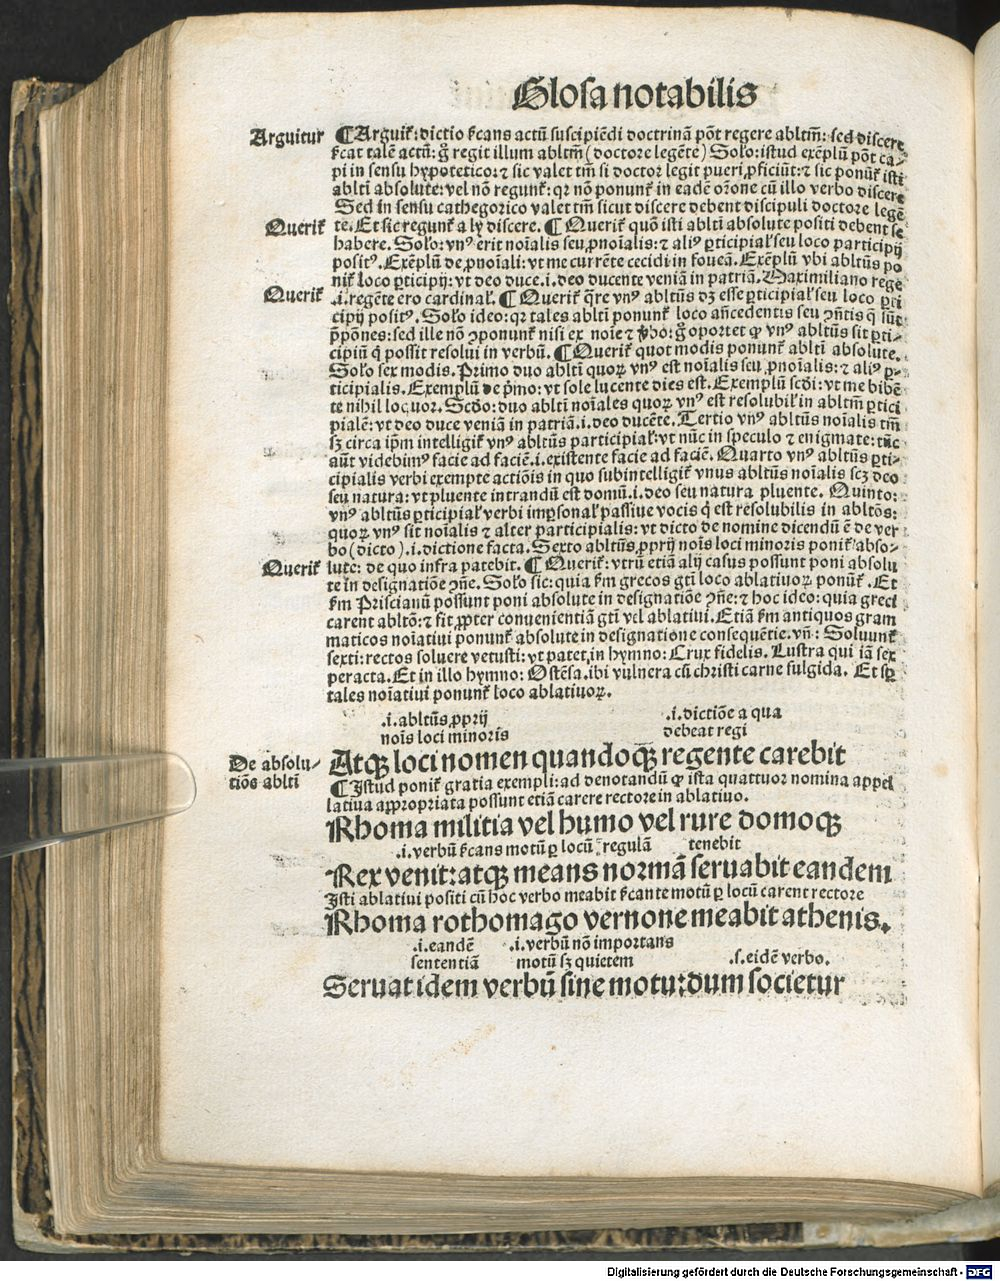 Glosa notabilis
Arguitur ¶Arguit᷑: dictio ſ̄cans actū suscipiēdi doctrinā pōt regere abltm̄: sed discere
ſ̄cat talē actū: gͦ regit illum abltm̄ (doctore legēte) Solo: istud exēplū pōt ca-
pi in sensu hypotetico: ⁊ sic valet tm̄ si doctor legit pueri ꝓficiūt: ⁊ sic ponūt᷑ isti
ablti absolute: vel nō regunt᷑: qꝛ nō ponunt᷑ in eadē oꝛ̄one cū illo verbo discere
Sed in sensu cathegorico valet tm̄ sicut discere debent discipuli doctore legē
Querit᷑ te. Et sic regunt᷑ a ly discere. ¶ Querit᷑ quō isti ablti absolute positi debent se
habere. Solo: vnꝰ erit noīalis seu ꝓnoīalis: ⁊ aliꝰ ꝑticipial᷑ seu loco participij
positꝰ. Exēplū de ꝓnoīali: vt me currēte cecidi in foueā. Exēplū vbi abltūs po
nit᷑ loco ꝑticipij: vt deo duce .i. deo ducente veniā in patriā. Maximiliano rege
Querit᷑ .i. regēte ero cardinal᷑. ¶ Querit᷑ q̄re vnꝰ abltūs dꝫ esse ꝑticipial᷑ seu loco ꝑti
cipij positꝰ. Solo ideo: qꝛ tales ablti ponunt᷑ loco an̄cedentis seu ꝯn̄tis q̄ sūt
ꝓpōnes: sed ille nō ꝯponunt᷑ nisi ex noīe ⁊ v̄bo: gͦ oportet ꝙ vnꝰ abltūs sit ꝑti-
cipiū q̄ possit resolui in verbū. ¶ Querit᷑ quot modis ponunt᷑ ablti absolute.
Solo sex modis. Primo duo ablti quoꝝ vnꝰ est noīalis seu ꝓnoīalis: ⁊ aliꝰ ꝑ-
ticipialis. Exemplū de pͥmo: vt sole lucente dies est. Exemplū scd̄i: vt me bibē
te nihil loquor. Scd̄o: duo ablti noīales quoꝝ vnꝰ est resolubil᷑ in abltm̄ ꝑtici
pialē: vt deo duce veniā in patriā .i. deo ducēte. Tertio vnꝰ abltūs noīalis tm̄
sꝫ circa ip̄m intelligit᷑ vnꝰ abltūs participial᷑: vt nūc in speculo ⁊ enigmate: tūc
aūt videbimꝰ facie ad faciē .i. existente facie ad faciē. Quarto vnꝰ abltūs ꝑti-
cipialis verbi exempte actiōis in quo subintelligit᷑ vnus abltūs noīalis scꝫ deo
seu natura: vt pluente intrandū est domū .i. deo seu natura pluente. Quinto:
vnꝰ abltūs ꝑticipial᷑ verbi imꝑsonal᷑ passiue vocis q̄ est resolubilis in abltōs:
quoꝝ vnꝰ sit noīalis ⁊ alter participialis: vt dicto de nomine dicendū ē de ver
bo (dicto) .i. dictione facta. Sexto abltūs ꝓprij noīs loci minoris ponit᷑ abso-
Querit᷑ lute: de quo infra patebit. ¶ Querit᷑: vtrū etiā alij casus possunt poni absolu
te in designatiōe ꝯn̄e. Solo sic: quia ſ̄m grecos gt̄i loco ablatiuoꝝ ponūt᷑. Et
ſ̄m Prisciauū possunt poni absolute in designatiōe ꝯn̄e: ⁊ hoc ideo: quia greci
carent abltō: ⁊ fit ꝓpter conuenientiā gt̄i vel ablatiui. Etiā ſ̄m antiquos gram
maticos noīatiui ponunt᷑ absolute in designatione consequētie. vn̄: Soluunt᷑
sexti: rectos soluere vetusti: vt patet in hymno: Crux fidelis. Lustra qui iā sex
peracta. Et in illo hymno: Ostēsa .ibi vulnera cū christi carne fulgida. Et sꝑ
tales noīatiui ponunt᷑ loco ablatiuoꝝ.
.i. abltūs ꝓprij .i. dictiōe a qua
noīs loci minoris debeat regi
De absolu-
tiōe ablti
Atqꝫ loci nomen quandoqꝫ regente carebit
¶ Istud ponit᷑ gratia exempli: ad denotandū ꝙ ista quattuor nomina appel
latiua appropriata possunt etiā carere rectore in ablatiuo.
Rhoma militia vel humo vel rure domoqꝫ
.i. verbū ſ̄cans motū ꝑ locū regulā tenebit
Rex venit: atqꝫ means normā seruabit eandem
Isti ablatiui positi cū hoc verbo meabit ſ̄cante motū ꝑ locū carent rectore
Rhoma rothomago vernone meabit athenis.
.i. eandē .i. verbū nō importans
sententiā motū sꝫ quietem .s. eidē verbo.
Seruat idem verbū sine motu: dum societur
Digitalisierung gefördert durch die Deutsche Forschungsgemeinschaft - DFG